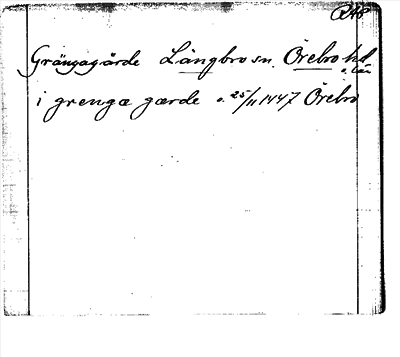 RAB
Grängagärde Längbro sn. Örebro hd
o. län
i grenga gærde o. 25/11 1447 Örebro